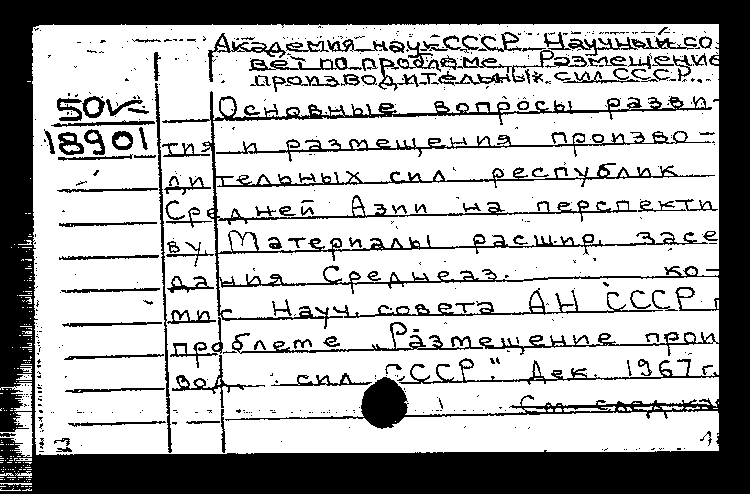 Академия наук СССР Научный со
вет по проблеме Размещение
производительных сил СССР.
50к
18901
Основные вопросы разви-
тия и размещения произво-
дительных сил республик
Средней Азии на перспекти
ву. Материалы расшир. засе
дания Среднеаз. ко-
мис Науч. совета АН СССР п
проблеме „Размещение прои
вод. сил СССР." Дек. 1967 г.
См. след. ка